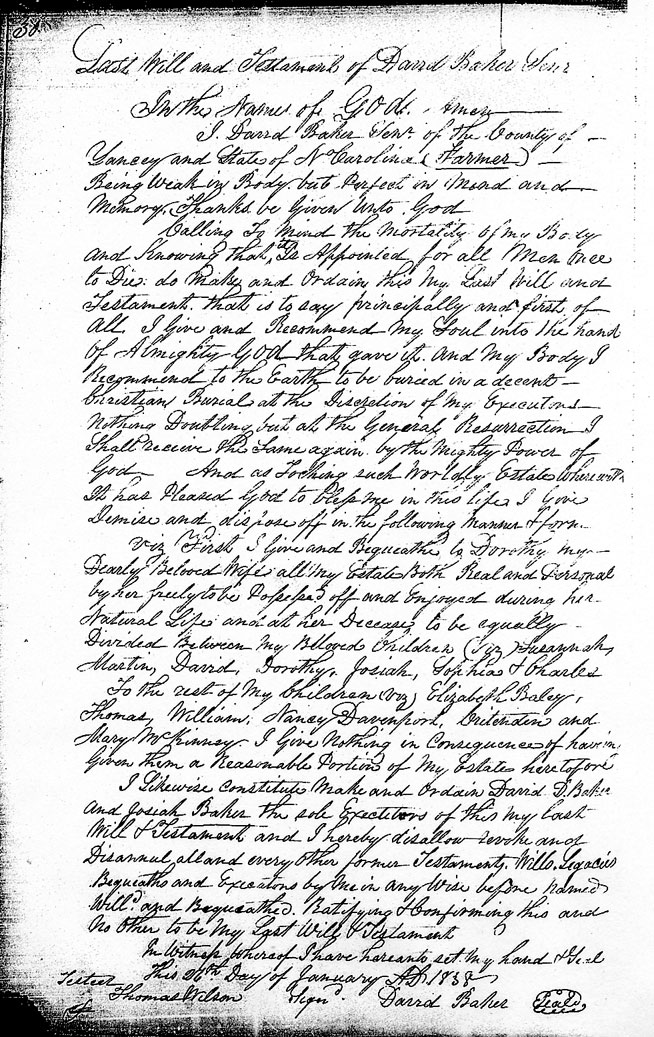 38
Last Will and Testament of David Baker Senr
In the Name of GOD. Amen
I David Baker Senr. of the County of
Yancey and State of N Carolina (Farmer)
Being Weak in Body but Perfect in Mind and
Memory, Thanks be Given Unto God
Calling To Mind the Mortality of my Body
and Knowing that it Is Appointed for all Men once
to Die: do Make and Ordain this My Last Will and
Testament. that is to say principally and first of
all, I Give and Recommend My Soul into the hand
of Almighty GOD that gave it. and My Body I
Recommend to the Earth to be buried in a decent
Christian Burial at the Discretion of My Executors
Nothing Doubting but at the General Resurrection I
Shall receive the Same again by the Mighty Power of
God And as Toching such Worldly Estate Wherewith
It has Pleased God to bless me in this life, I Give
Demise and dispose off in the following Manner & form
Viz First I Give and Bequeathe to Dorothy my
Dearly Beloved Wife all My Estate Both Real and Personal
by her freely to be Possessd off and Enjoyed during her
Natural Life and at her Decease to be equally
Divided Between My Beloved Children (viz) Susannah,
Martin, David, Dorothy, Josiah, Sophia & Charles
To the rest of My Children (viz) Elizabeth Baley,
Thomas, William, Nancy Davenport, and
Mary McKinney. I Give Nothing in Consequence of havin
Given them a Reasonable Portion of My Estate heretofore
I Likewise Constitute Make and Ordain David D. Baker
and Josiah Baker the sole Executors of this My Last
Will & Testament and I hereby disallow revoke and
Disannul all and every other former Testaments, Wills, Legacies
Bequeaths and Executors by me in any Wise before Named
Willd. and Bequeathed. Ratifying & Confirming this and
No Other to be My Last Will & Testament
In Witness Whereof I have hereunto set My hand & Seal
This 26th Day of January AD. 1838
Testes
Thomas Wilson Signd. David Baker Seal